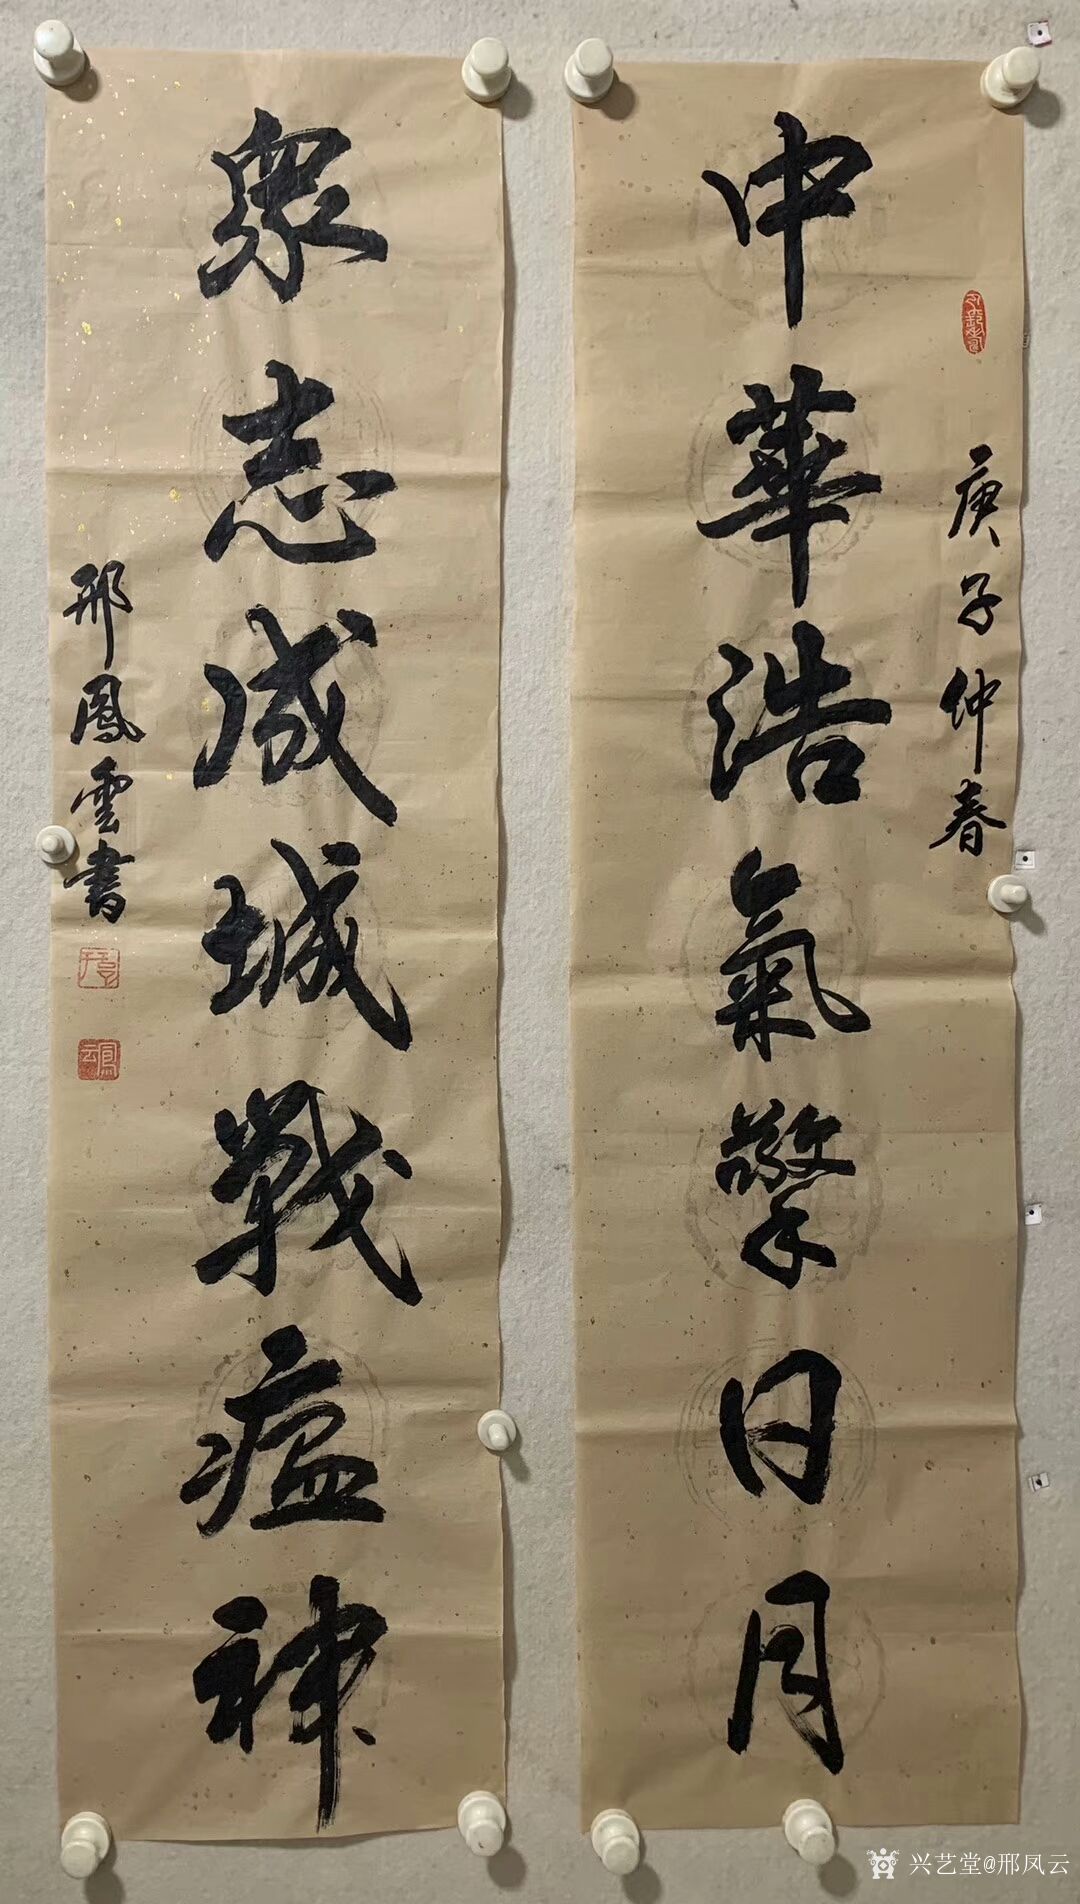 中華浩氣擎日月
庚子仲春
眾志成城戰瘟神
邢鳳雲書
兴艺堂@邢凤云